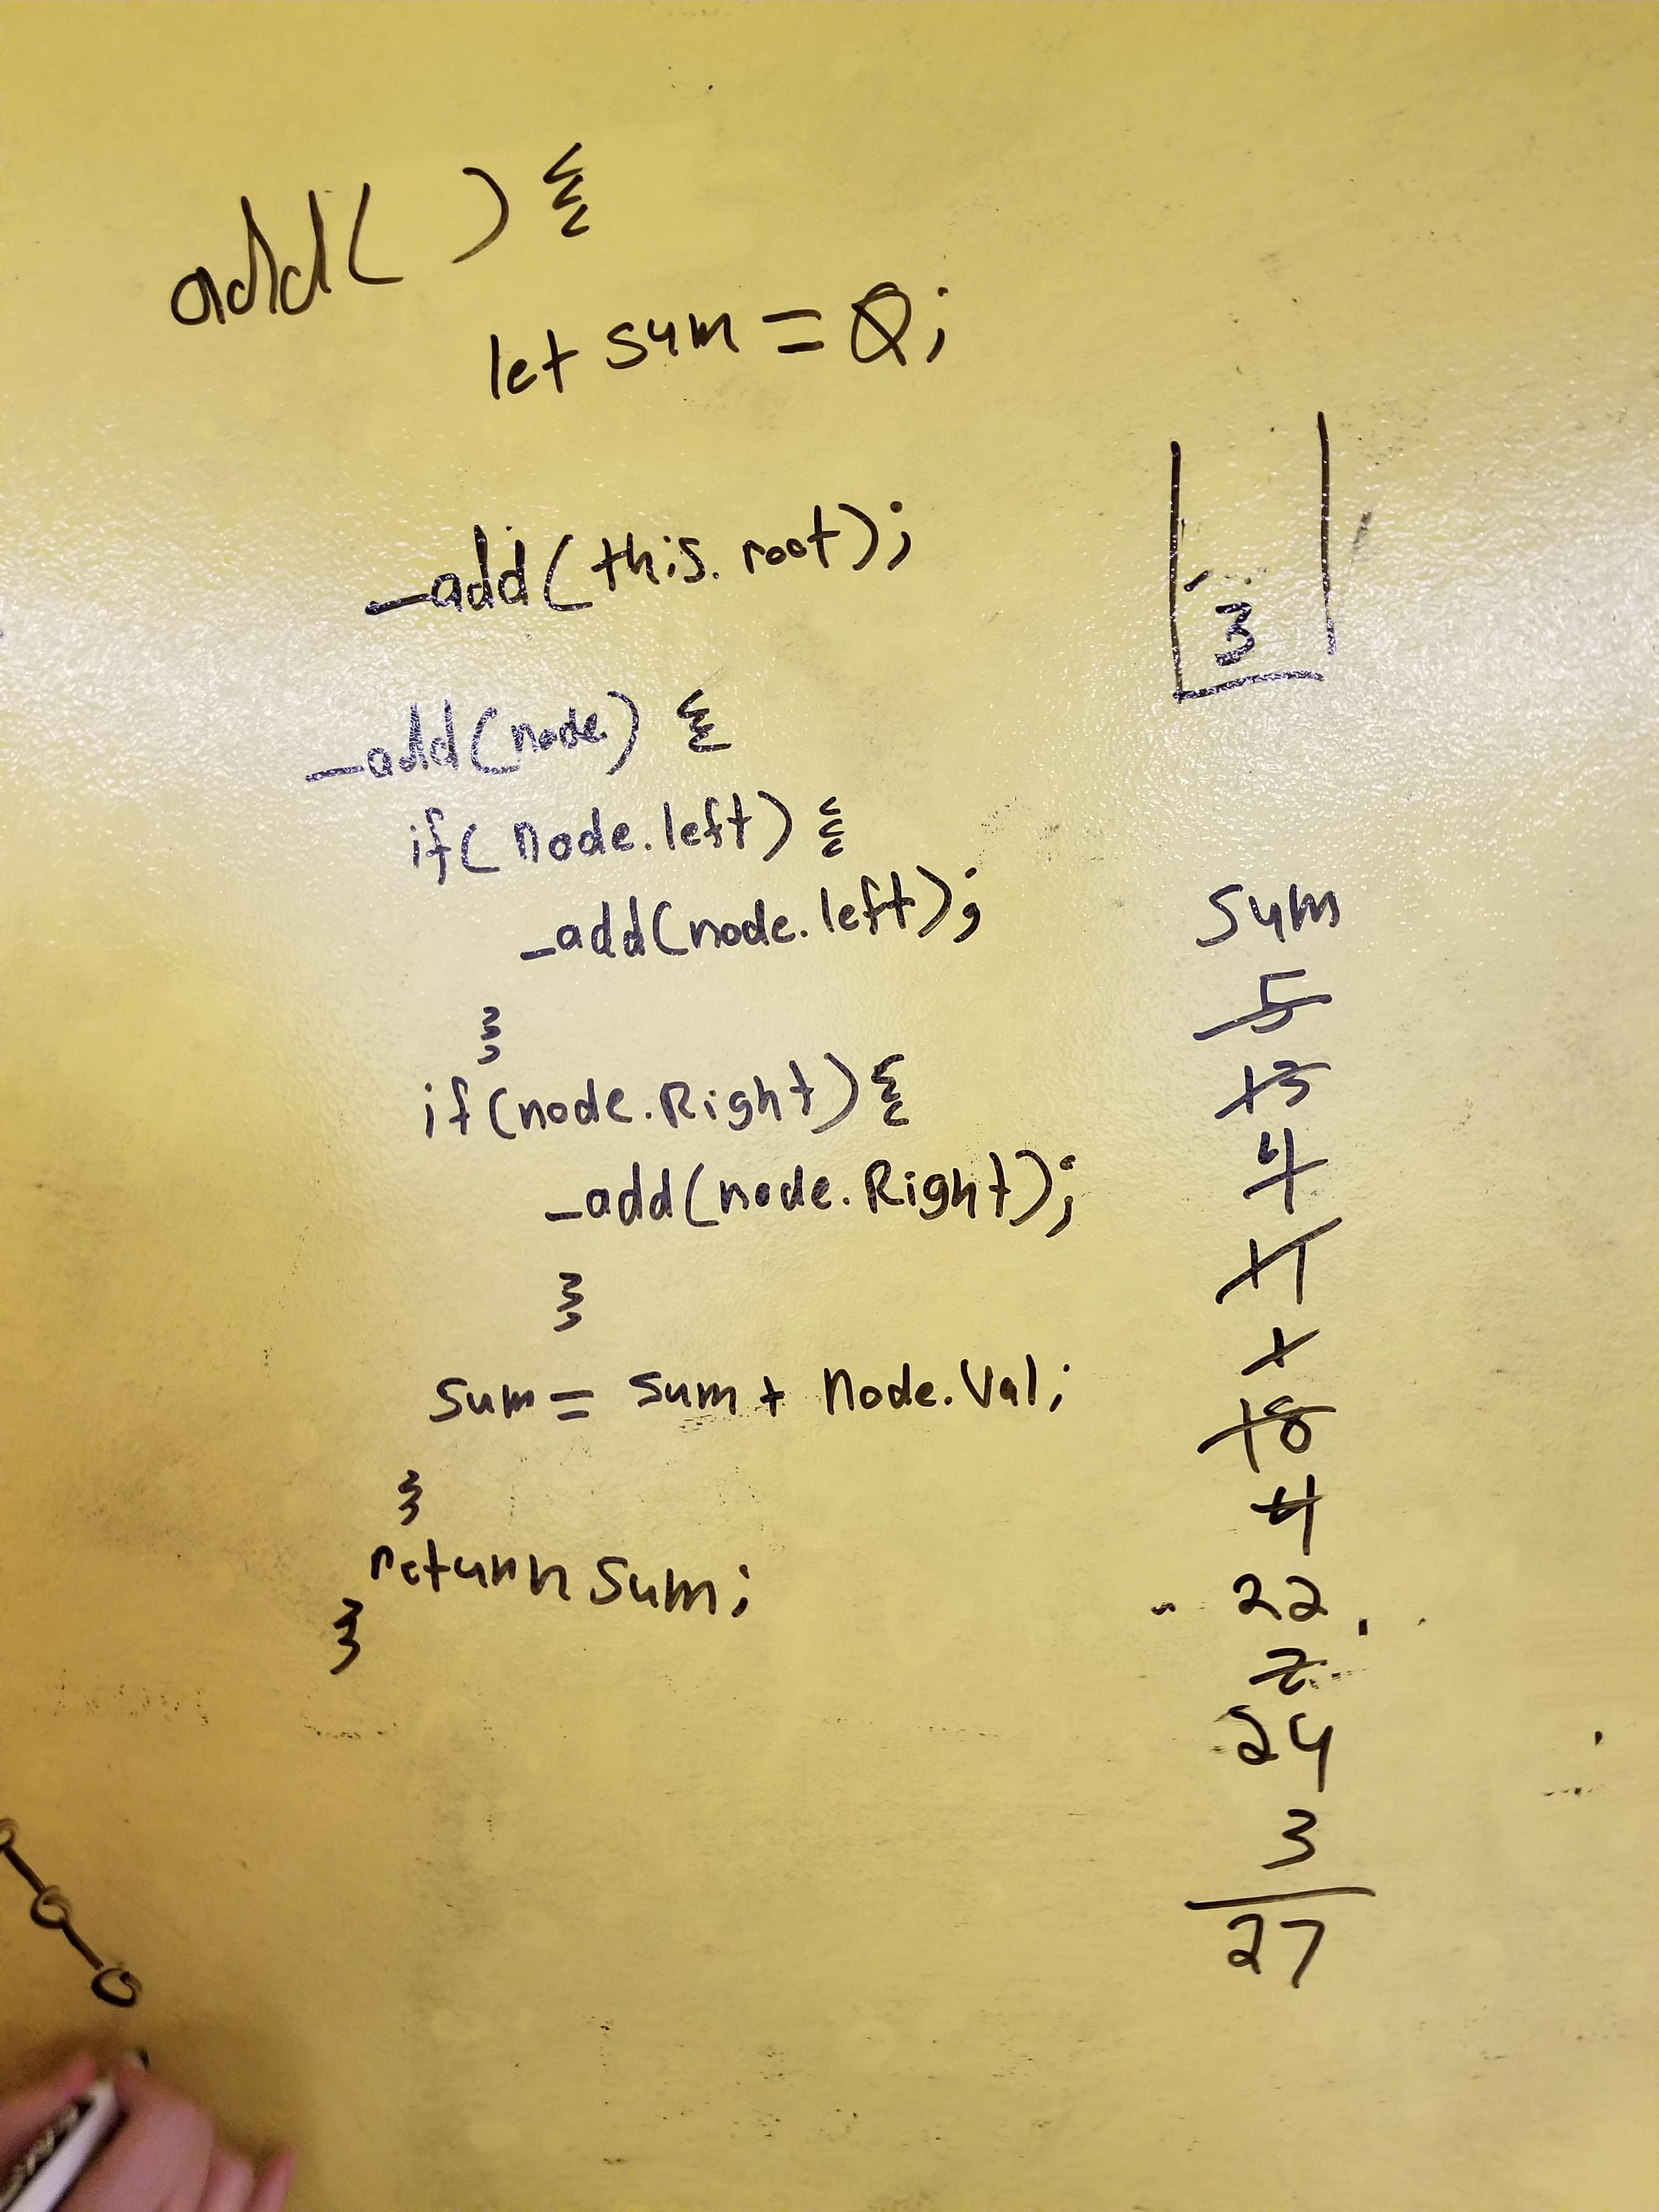 add( ) {
let sum = 0;
_add(this.root);
_add(node) {
if(node.left) {
_add(node.left);
}
if(node.Right) {
_add(node.Right);
}
sum = sum + node.Val;
}
return sum;
}
3
sum
5
+3
4
+1
+8
4
22
2
24
3
27